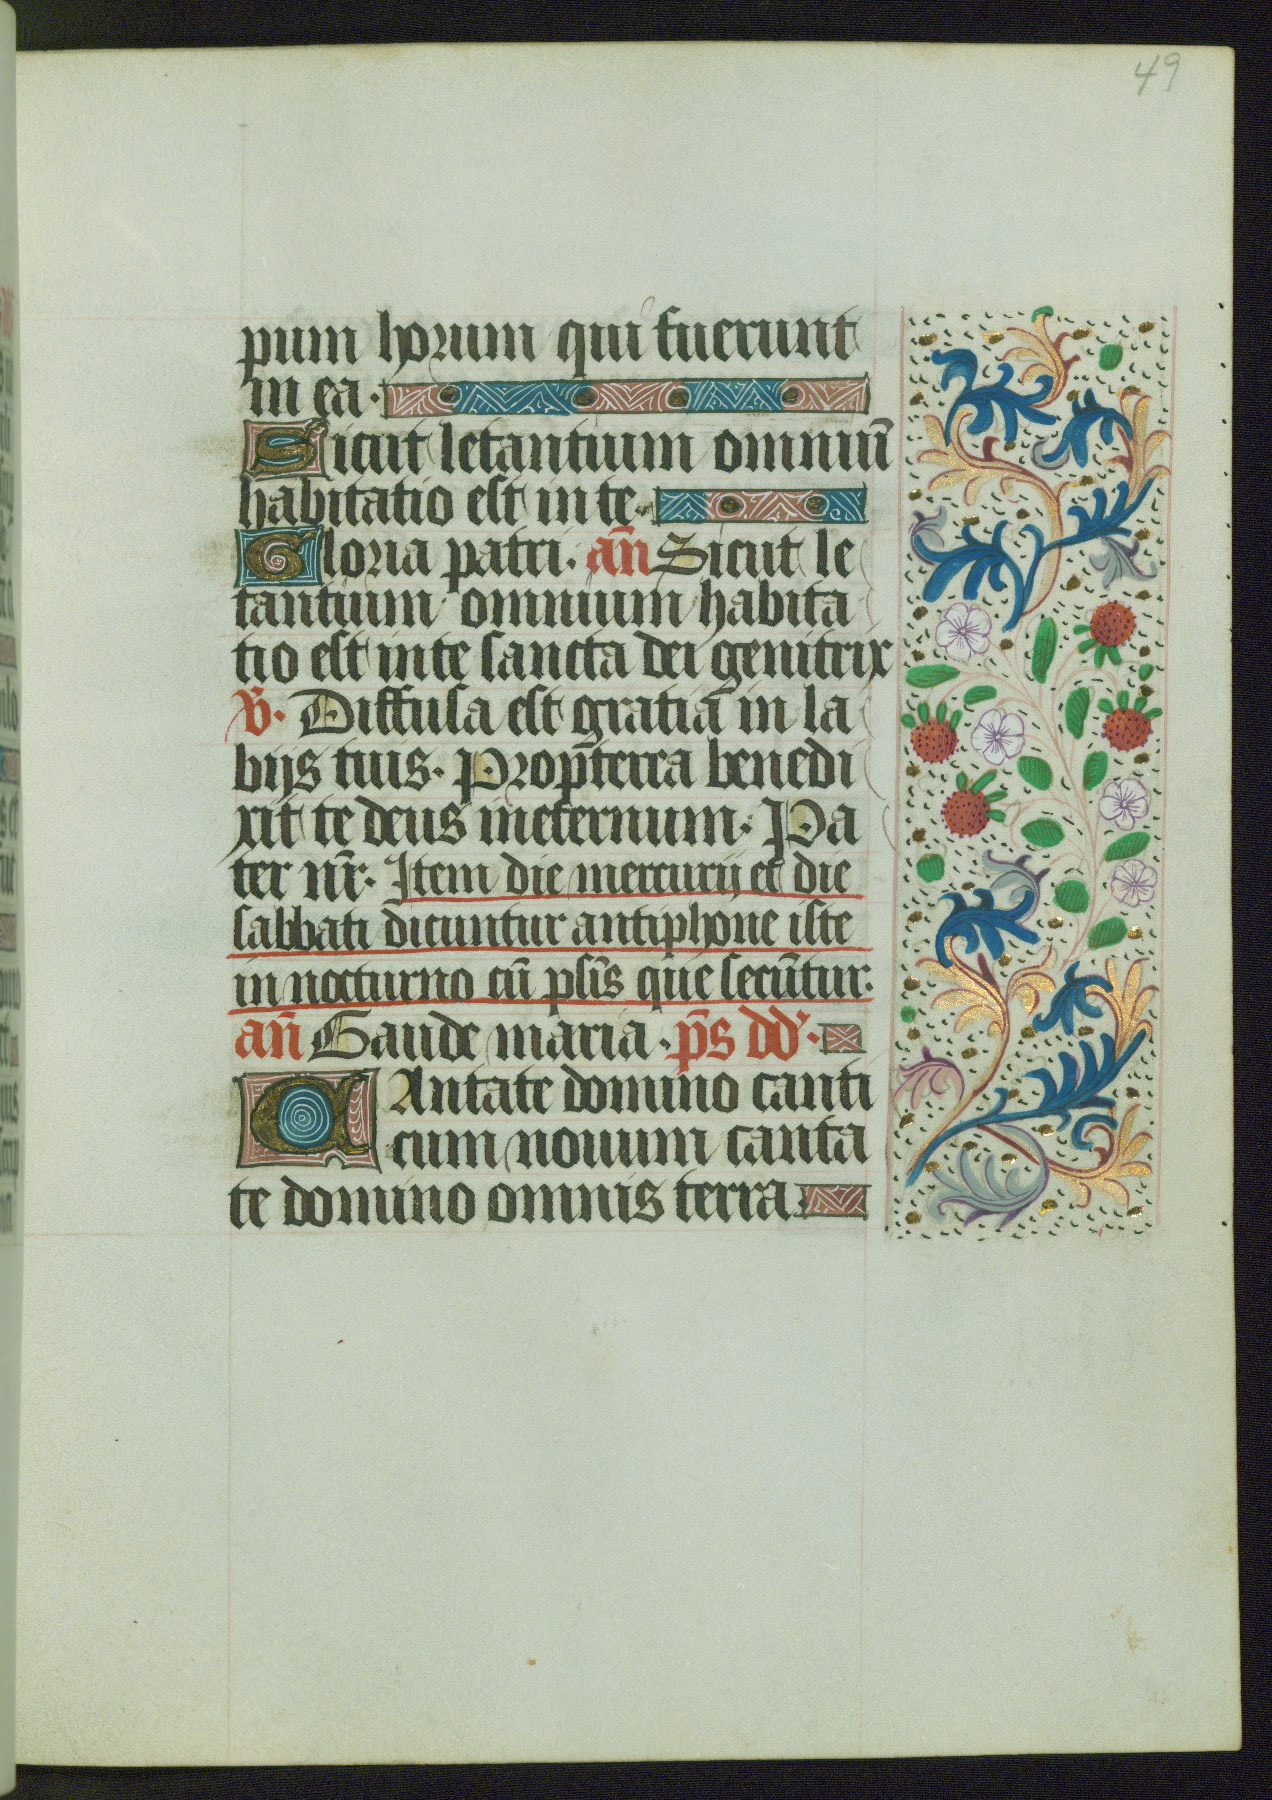 49
pum horum qui fuerunt
in ea.
Sicut letantium omniū
habitatio est in te.
Gloria patri. an̄ Sicut le
tantium omnium habita
tio est in te sancta dei genitrix
V̄. Diffusa est gratiā in la
bijs tuis. Prop̄terea benedi
xit te deus ineternum. Pa
ter nr̄. Item die mercurij et die
sabbati dicuntur antiphone iste
in nocturno cū psīs que secūtur.
an̄ Gaude maria. ps̄ dd'.
CAntate domino canti
cum nouum canta
te domino omnis terra.